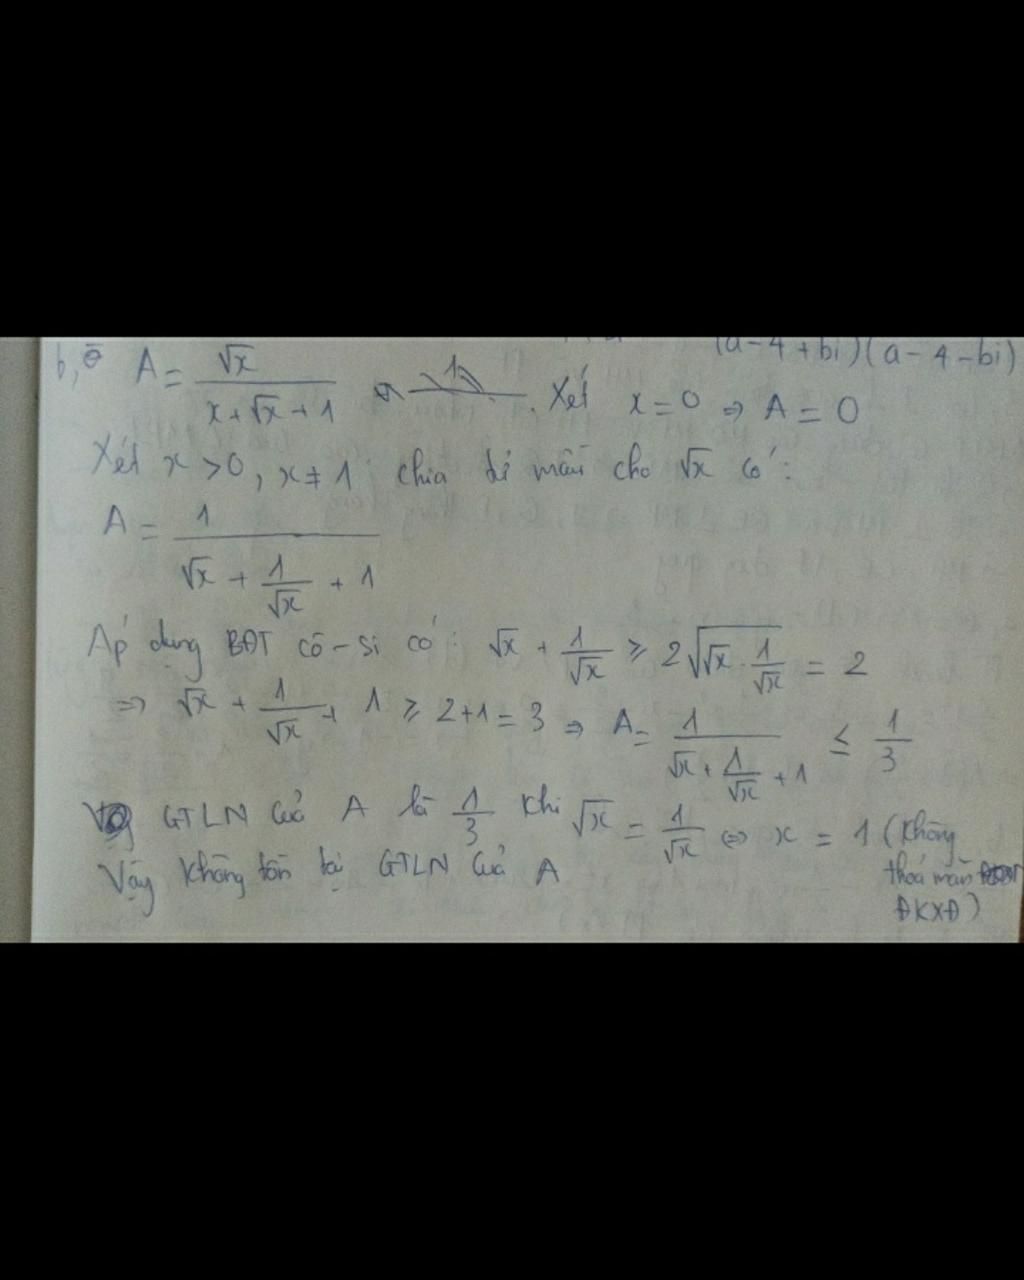 (a-4+bi)(a-4-bi)
b, A = √x / (x+√x+1) . Xét x=0 ⇒ A = 0
Xét x >0, x≠1 chia tử mẫu cho √x có:
A = 1 / (√x + 1/√x + 1)
Áp dụng BĐT cô-si có: √x + 1/√x ≥ 2√(√x . 1/√x) = 2
⇒ √x + 1/√x + 1 ≥ 2+1=3 ⇒ A = 1 / (√x + 1/√x + 1) ≤ 1/3
GTLN của A là 1/3 khi √x = 1/√x ⇔ x = 1 (không
thoả mãn
ĐKXĐ)
Vậy không tồn tại GTLN của A